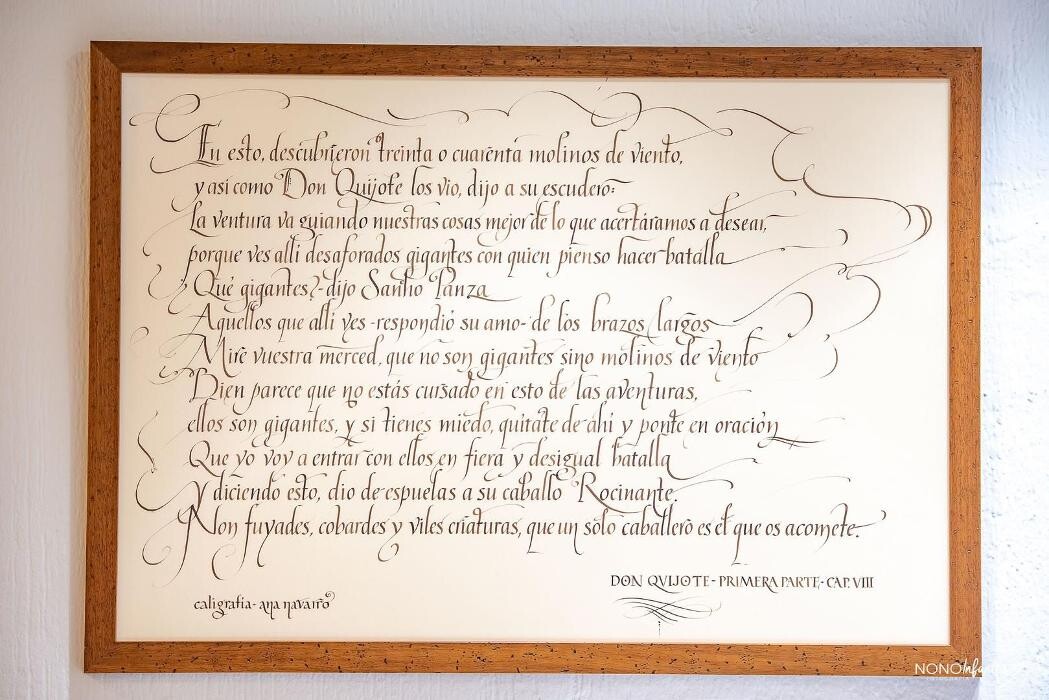 En esto, descubrieron treinta o cuarenta molinos de viento,
y así como Don Quijote los vio, dijo a su escudero:
la ventura va guiando nuestras cosas mejor de lo que acertáramos a desear,
porque ves allí desaforados gigantes con quien pienso hacer batalla
Qué gigantes?- dijo Sancho Panza
Aquellos que allí ves -respondió su amo- de los brazos largos
Mire vuestra merced, que no son gigantes sino molinos de viento
Bien parece que no estás cursado en esto de las aventuras,
ellos son gigantes, y si tienes miedo, quítate de ahí y ponte en oración
Que yo voy a entrar con ellos en fiera y desigual batalla
Y diciendo esto, dio de espuelas a su caballo Rocinante.
Non fuyades, cobardes y viles criaturas, que un sólo caballero es el que os acomete.
DON QVIJOTE - PRIMERA PARTE - CAP. VIII
caligrafía - ana navarro
NONO